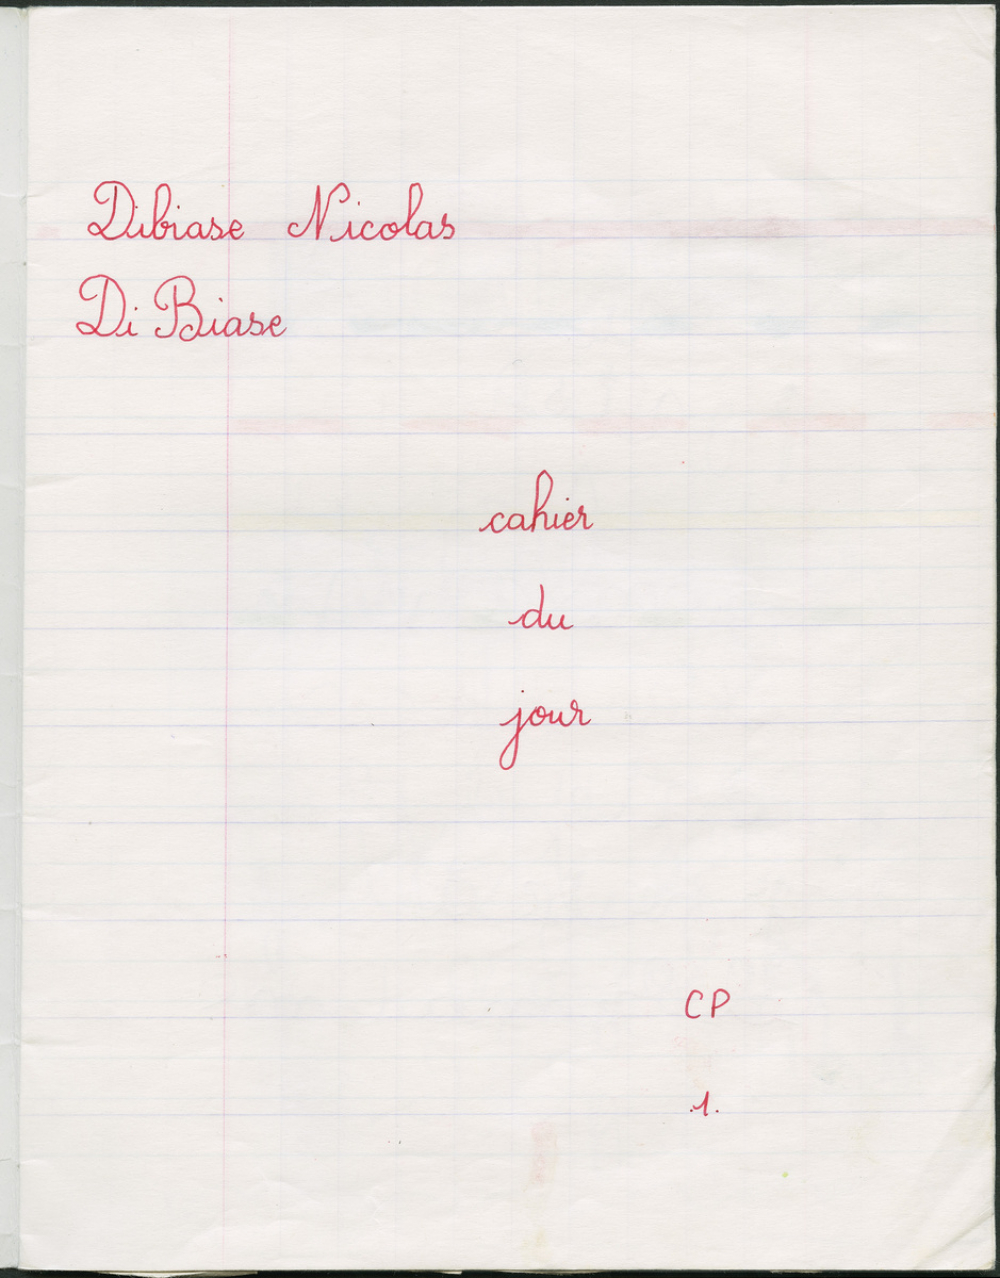 Dibiase Nicolas
Di Biase
cahier
du
jour
CP
.1.